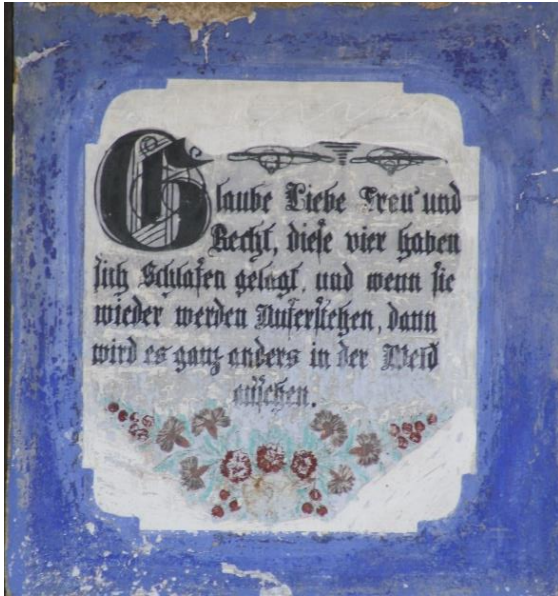 Glaube Liebe Treu' und
Recht, diese vier haben
sich Schlafen gelagt, und wenn sie
wieder werden Auferstehen, dann
wird es ganz anders in der Welt